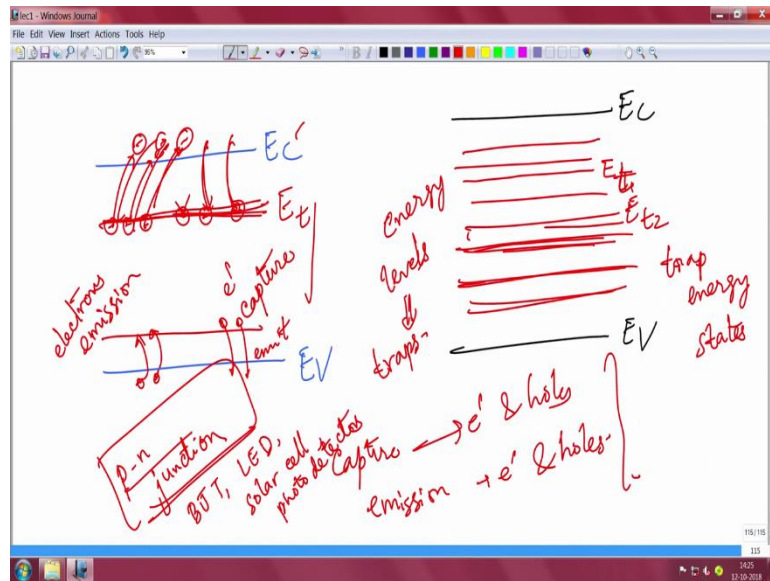 lec1 - Windows Journal
File Edit View Insert Actions Tools Help
95%
B I
Ec'
Et
electrons
emission
e'
capture
emit
EV
p-n
junction
BJT, LED,
solar cell
photodetectos
EC
Et1
Et2
energy
levels
⇓
traps-
trap
energy
states
EV
Captre → e' & holes
emission → e' & holes-
115/115
115
14:25
12-10-2018